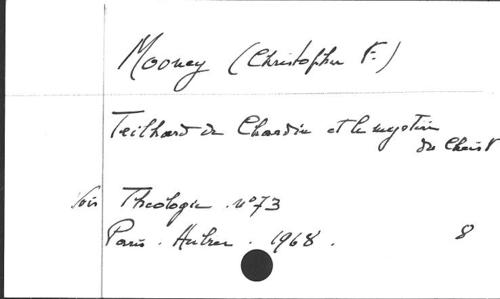 Mooney (Christopher F.)
Teilhard de Chardin et le mystère
du Christ
Voir Théologie . n° 73
Paris . Aubier . 1968 . 8